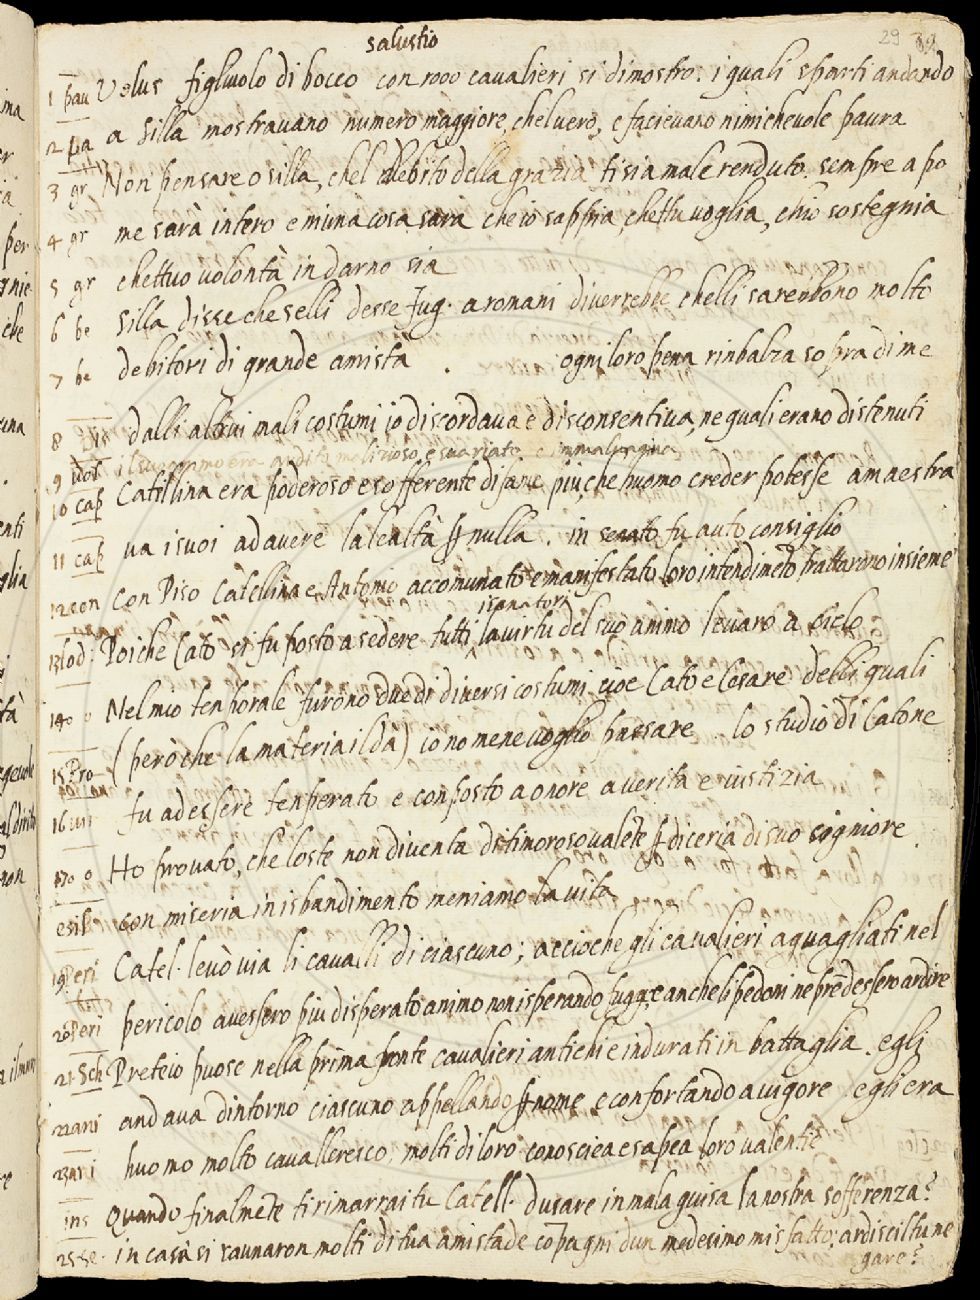 salustio
29
1 pau Velus figluolo di bocco con 1000 cavalieri si dimostro: i quali sparti andando
2 pa a Silla mostravano numero maggiore, chelvero, e facievano nimichevole paura
3 gr Non pensare o silla, chel debito della gratia ti sia male renduto, sempre a po
4 gr me sarà intero e niuna cosa sarà che io sappia, chettu voglia, chio sostegnia
5 gr chettuo volontà indarno sia
6 be Silla disse che selli desse Jug. a romani diverrebbe chelli sarebbono molto
7 be debitori di grande amista . ogni loro pena rinbalza sopra di me
8 dalli altrui mali costumi io discordava e disconsentiva, ne quali erano distenuti
9 il suo animo era ardito malizioso, e svariato e
10 cap Catillina era poderoso e sofferente di fame piu, che huomo creder potesse amaestra
11 cap va i suoi ad avere la lealtà p nulla . in senato fu auto consiglio
12 con Con Piso Catellina e Antonio accomunato e manifestato loro intendimeto trattarono insieme
isenatori
13 lod: Poiche Cato si fu posto a sedere tutti la virtu del suo animo levaro a cielo
14 o o Nel mio tenporale furono due di diversi costumi, cioe Cato e Cesare delli quali
15 Pro (però che la materia il da) io no mene voglio passare . lo studio di Catone
16 fu ad essere tenperato e conposto a onore a verita e iustizia
17 o o Ho provato, che loste non diventa di timoroso valete p diceria di suo signiore .
esil con miseria in isbandimento meniamo la vita
19 Peri Catel. levò via li cavalli di ciascuno; accioche gli cavalieri aguagliati nel
20 Peri pericolo avessero piu disperato animo non isperando fugg, e anche li pedoni ne predessero ardire
21 Sch Preteio puose nella prima fronte cavalieri antichi e indurati in battaglia. egli
22 ani andava dintorno ciascuno appellando p nome, e confortando a vigore egli era
23 ani huomo molto cavalleresco; molti di loro conosciea e sapea loro valentie
ins Quando finalmete ti rimarrai tu Catell. dusare in mala guisa la nostra sofferenza?
25 se. in casa si raunaron molti di tua amista de copagni dun medesimo misfatto; ardisciltu ne
gare?